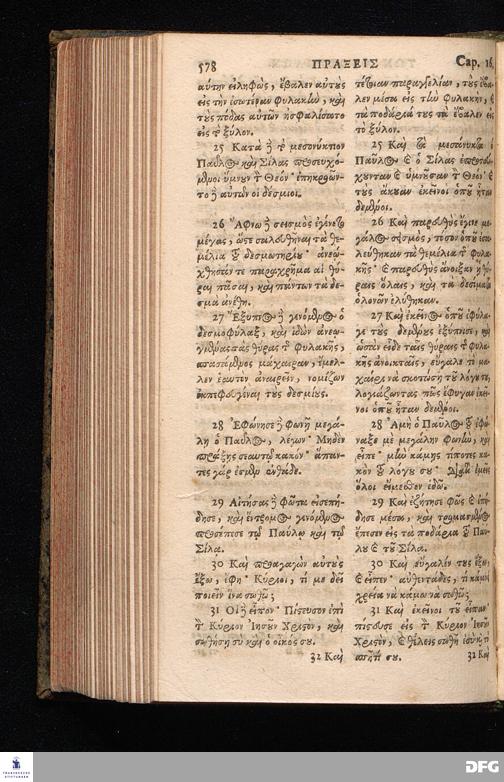 578 ΠΡΑΞΕΙΣ Cap. 16.
αὐτὴν εἰληφὼς, ἔβαλεν αὐτοὺς
εἰς τὴν ἐσωτέραν φυλακὴν, καὶ
τοὺς πόδας αὐτῶν ἠσφαλίσατο
εἰς τὸ ξύλον.
25 Κατὰ δὲ τὸ μεσονύκτιον
Παῦλος καὶ Σίλας προσευχό-
μενοι ὕμνουν τὸν Θεόν· ἐπηκροῶν-
το δὲ αὐτῶν οἱ δέσμιοι.
26 Ἄφνω δὲ σεισμὸς ἐγένετο
μέγας, ὥστε σαλευθῆναι τὰ θε-
μέλια τοῦ δεσμωτηρίου· ἀνεώ-
χθησάν τε παραχρῆμα αἱ θύ-
ραι πᾶσαι, καὶ πάντων τὰ δε-
σμὰ ἀνέθη.
27 Ἔξυπνος δὲ γενόμενος ὁ
δεσμοφύλαξ, καὶ ἰδὼν ἀνεῳ-
γμένας τὰς θύρας τῆς φυλακῆς,
σπασάμενος μάχαιραν, ἔμελ-
λεν ἑαυτὸν ἀναιρεῖν, νομίζων
ἐκπεφευγέναι τοὺς δεσμίους.
28 Ἐφώνησε δὲ φωνῇ μεγά-
λῃ ὁ Παῦλος, λέγων· Μηδὲν
πράξῃς σεαυτῷ κακόν· ἅπαν-
τες γάρ ἐσμεν ἐνθάδε.
29 Αἰτήσας δὲ φῶτα εἰσεπή-
δησε, καὶ ἔντρομος γενόμενος
προσέπεσε τῷ Παύλῳ καὶ τῷ
Σίλᾳ.
30 Καὶ προαγαγὼν αὐτοὺς
ἔξω, ἔφη· Κύριοι, τί με δεῖ
ποιεῖν ἵνα σωθῶ;
31 Οἱ δὲ εἶπον· Πίστευσον ἐπὶ
τὸν Κύριον Ἰησοῦν Χριστὸν, καὶ
σωθήσῃ σὺ καὶ ὁ οἶκός σου.
32 Καὶ
τέτοιαν παραγγελίαν, τοὺς ἔβα-
λεν μέσα εἰς τὴν φυλακὴν, καὶ
τὰ ποδάρια τους τὰ ἔβαλεν εἰς
τὸ ξύλον.
25 Καὶ τὰ μεσάνυκτα ὁ
Παῦλος καὶ ὁ Σίλας ἐπροσεύ-
χουνταν καὶ ὑμνοῦσαν τὸν Θεόν· καὶ
τοὺς ἄκουαν ἐκεῖνοι ὁποῦ ἦταν
δεμένοι.
26 Καὶ παρευθὺς ἔγινε με-
γάλος σεισμὸς, τόσον ὁποῦ ἐσα-
λεύθηκαν τὰ θεμέλια τῆς φυλα-
κῆς· καὶ παρευθὺς ἄνοιξαν ἡ θύ-
ραις ὅλαις, καὶ τὰ δεσίματα
ὁλονῶν ἐλύθηκαν.
27 Καὶ ἐκεῖνος ὁποῦ ἐφύλα-
γε τοὺς δεμένους ἐξύπνισε, καὶ
ὡσὰν εἶδε ταῖς θύραις τῆς φυλα-
κῆς ἀνοικταῖς, εὔγαλε τὸ μα-
χαίρι νὰ σκοτώσῃ τοῦ λόγου του,
λογιάζωντας πῶς ἔφυγαν ἐκεῖ-
νοι ὁποῦ ἦταν δεμένοι.
28 Ἀμὴ ὁ Παῦλος τοῦ ἐφώ-
ναξε μὲ μεγάλην φωνὴν, καὶ
εἶπε· μὴν κάμῃς τίποτες κα-
κὸν τοῦ λόγου σου· διατὶ ἐμεῖς
ὅλοι εἴμεσθεν ἐδῶ.
29 Καὶ ἐζήτησε φῶς καὶ ἐπή-
δησε μέσα, καὶ τρομασμένος
ἔπεσεν εἰς τὰ ποδάρια τοῦ Παύ-
λου καὶ τοῦ Σίλα.
30 Καὶ εὐγαλέν τους ἔξω,
καὶ εἶπεν· αὐθεντάδες, τί κάμνει
χρεία νὰ κάμω νὰ σωθῶ;
31 Καὶ ἐκεῖνοι τοῦ εἶπαν·
πίστευσε εἰς τὸν Κύριον Ἰησοῦν
Χριστὸν, καὶ θέλεις σωθῆ ἐσὺ καὶ τὸ
σπῆτι σου. 32 Καὶ
FRANCKESCHE
STIFTUNGEN
DFG